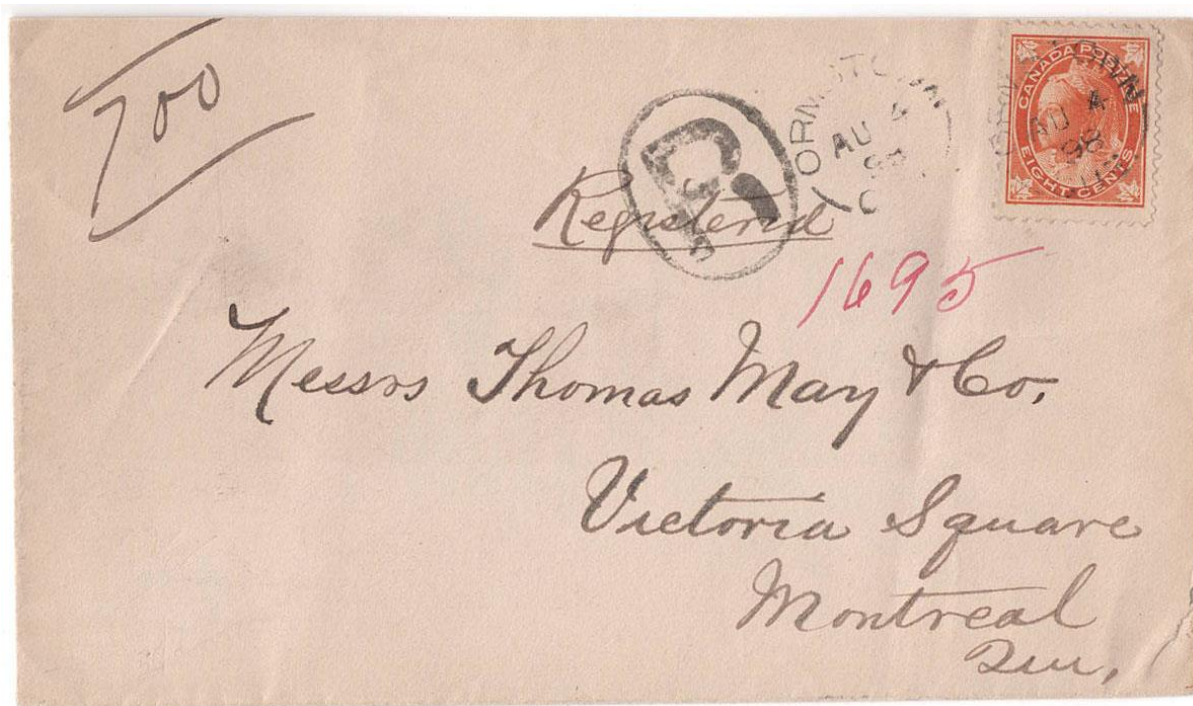 700
ORMSTOWN
AU 4
98
CANADA POSTAGE
EIGHT CENTS
AU 4
98
R
Registered
1695
Messrs Thomas May & Co.
Victoria Square
Montreal
Que.